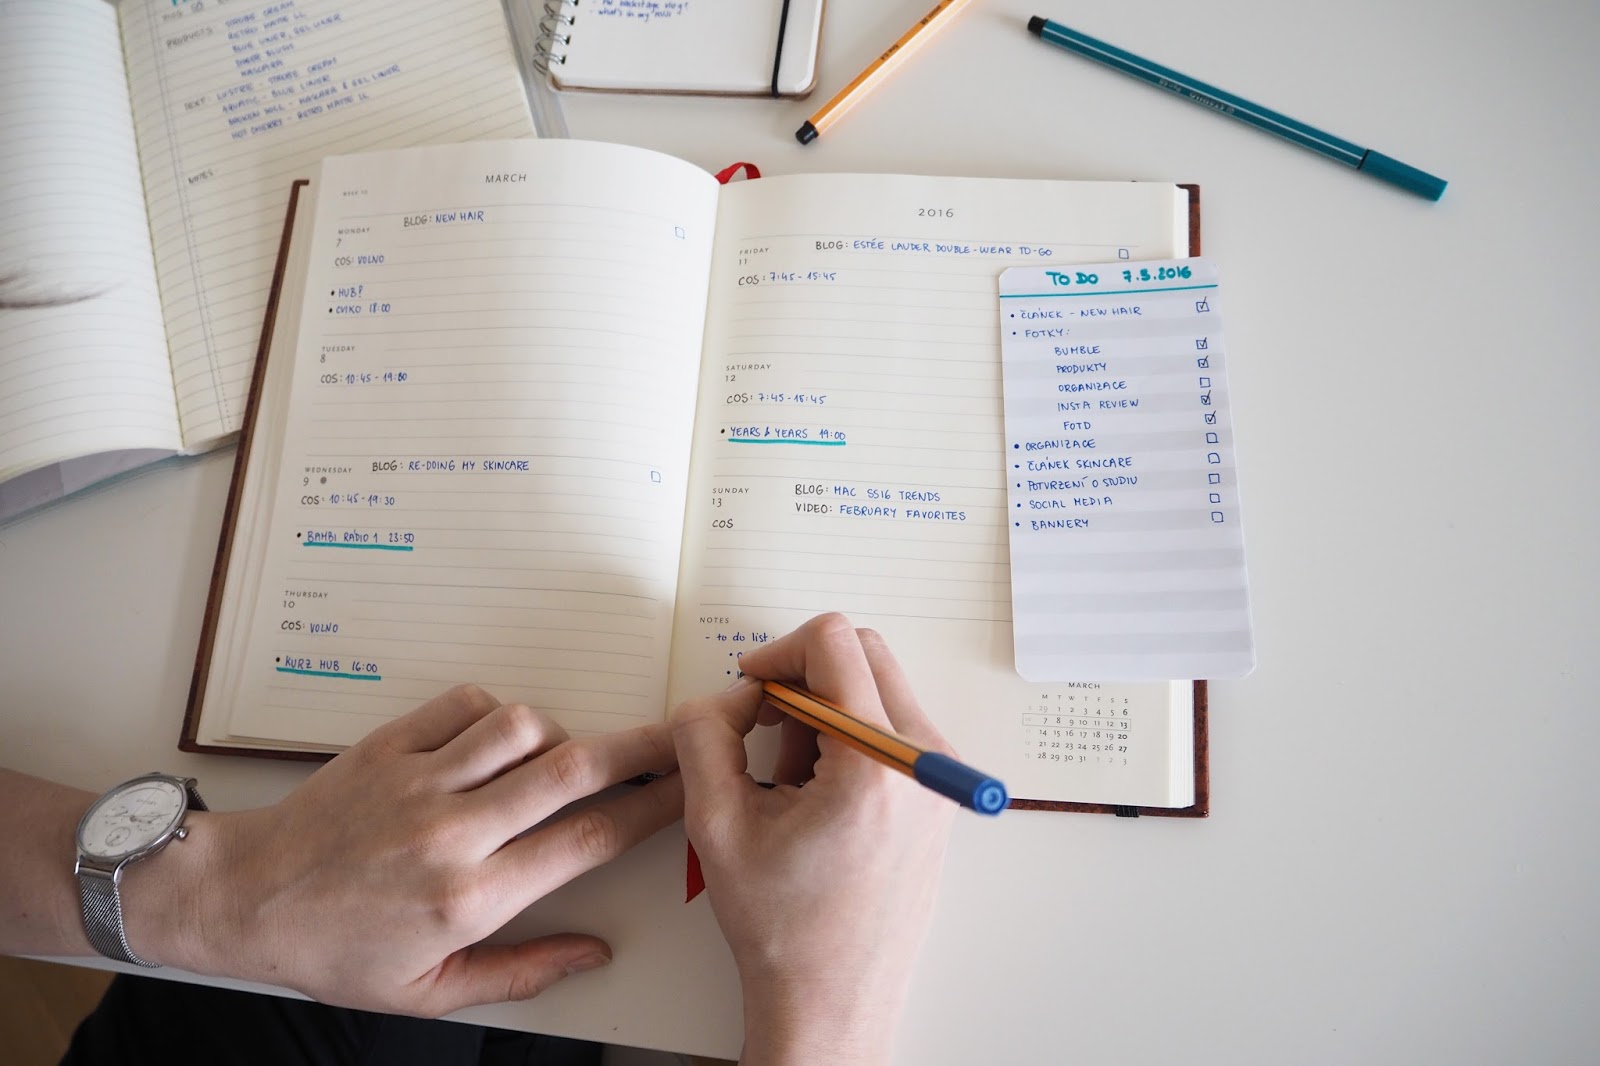 PRODUCTS: STROBE CREAM
RETRO MATTE LL
BLUE LINER, GEL LINER
SHEER BLUSH
MASCARA
TEXT: LUSTRE - STROBE CREAM
AQUATIC - BLUE LINER
BROKEN HILL - MASCARA & GEL LINER
HOT CHERRY - RETRO MATTE LL
NOTES
- what's in my
MARCH
WEEK 10
MONDAY
7
BLOG: NEW HAIR
COS: VOLNO
• HUB?
• CVIKO 18:00
TUESDAY
8
COS: 10:45 - 19:30
WEDNESDAY
9
BLOG: RE-DOING MY SKINCARE
COS: 10:45 - 19:30
• BAMBI RÁDIO 1 23:50
THURSDAY
10
COS: VOLNO
• KURZ HUB 16:00
2016
FRIDAY
11
BLOG: ESTÉE LAUDER DOUBLE-WEAR TO-GO
COS: 7:45 - 15:45
SATURDAY
12
COS: 7:45 - 15:45
• YEARS & YEARS 19:00
SUNDAY
13
BLOG: MAC SS16 TRENDS
VIDEO: FEBRUARY FAVORITES
COS
NOTES
- to do list:
TO DO 7.3.2016
• ČLÁNEK - NEW HAIR
• FOTKY:
BUMBLE
PRODUKTY
ORGANIZACE
INSTA REVIEW
FOTD
• ORGANIZACE
• ČLÁNEK SKINCARE
• POTVRZENÍ O STUDIU
• SOCIAL MEDIA
• BANNERY
MARCH
M T W T F S S
29 1 2 3 4 5 6
7 8 9 10 11 12 13
14 15 16 17 18 19 20
21 22 23 24 25 26 27
28 29 30 31 1 2 3